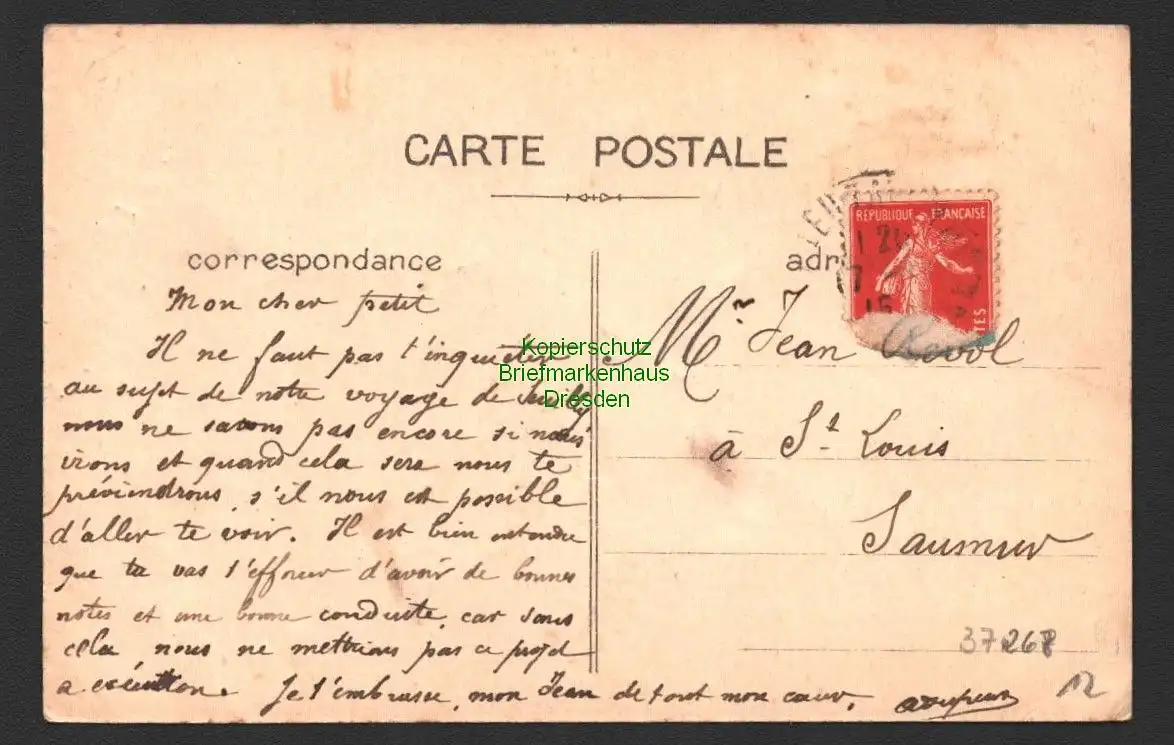 CARTE POSTALE
correspondance
adr
REPUBLIQUE FRANÇAISE
Mon cher petit
Il ne faut pas t'inquieter
au sujet de notre voyage de
nous ne savons pas encore si nous
irons et quand cela sera nous te
préviendrons s'il nous est possible
d'aller te voir. Il est bien entendu
que tu vas t'efforcer d'avoir de bonnes
notes et une bonne conduite, car sans
cela nous ne mettrions pas ce projet
a exécution. Je t'embrasse, mon Jean de tout mon cœur.
Mr Jean Revol
à St Louis
Saumur
37268
12
Kopierschutz
Briefmarkenhaus
Dresden